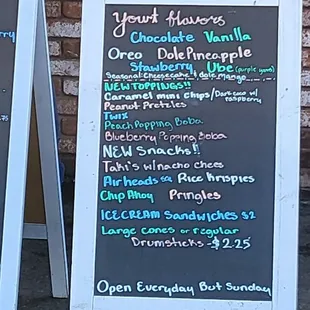 Yourt flavors
Chocolate Vanilla
Oreo Dole Pineapple
Stawberry Ube (purple yam)
Seasonal Cheesecake & dole Mango
NEW TOPPINGS!!
Caramel mini chips/Dark coco w/ raspberry
Peanut Pretzels
Twix
Peach Popping Boba
Blueberry Popping Boba
NEW Snacks!!
Taki's w/nacho chees
Airheads Rice Krispies
Chip Ahoy Pringles
ICE CREAM Sandwiches $2
Large Cones or regular
Drumsticks -$2.25
Open Everyday But Sunday